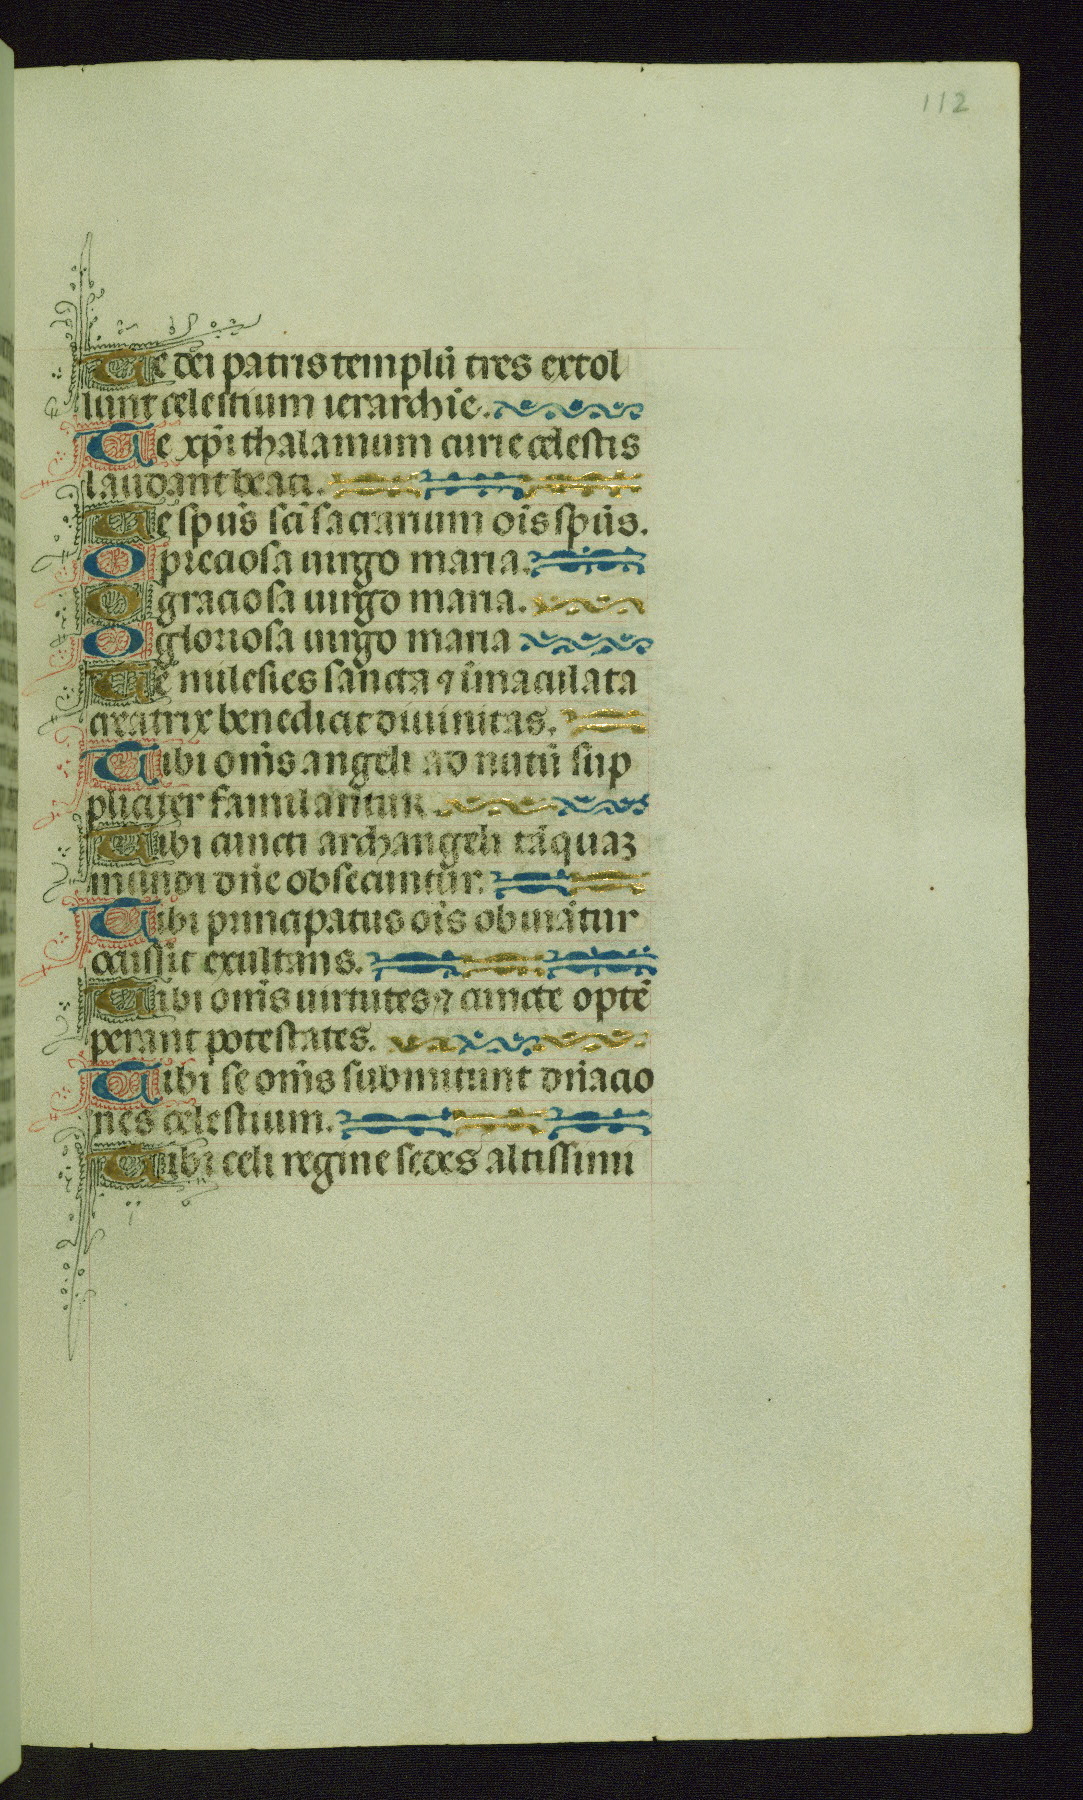 112
Te dei patris templū tres extol
lunt celestium ierarchie.
Te xp̄i thalamum curie celestis
laudant beati.
Te sp̄us sc̄i sacrarium oīs sp̄us.
O preciosa uirgo maria.
O graciosa uirgo maria.
O gloriosa uirgo maria
Te milesies sancta ⁊ īmaculata
creatrix benedicit diuinitas.
Tibi om̄s angeli ad nutū sup
pliciter famulantur.
Tibi cuncti archangeli tāquaꝫ
mundi dn̄e obsecuntur.
Tibi principatus oīs obuiātur
occussit exultans.
Tibi om̄s uirtutes ⁊ cuncte optē
perant potestates.
Tibi se om̄s submittunt dn̄acio
nes celestium.
Tibi celi regine sedes altissimi